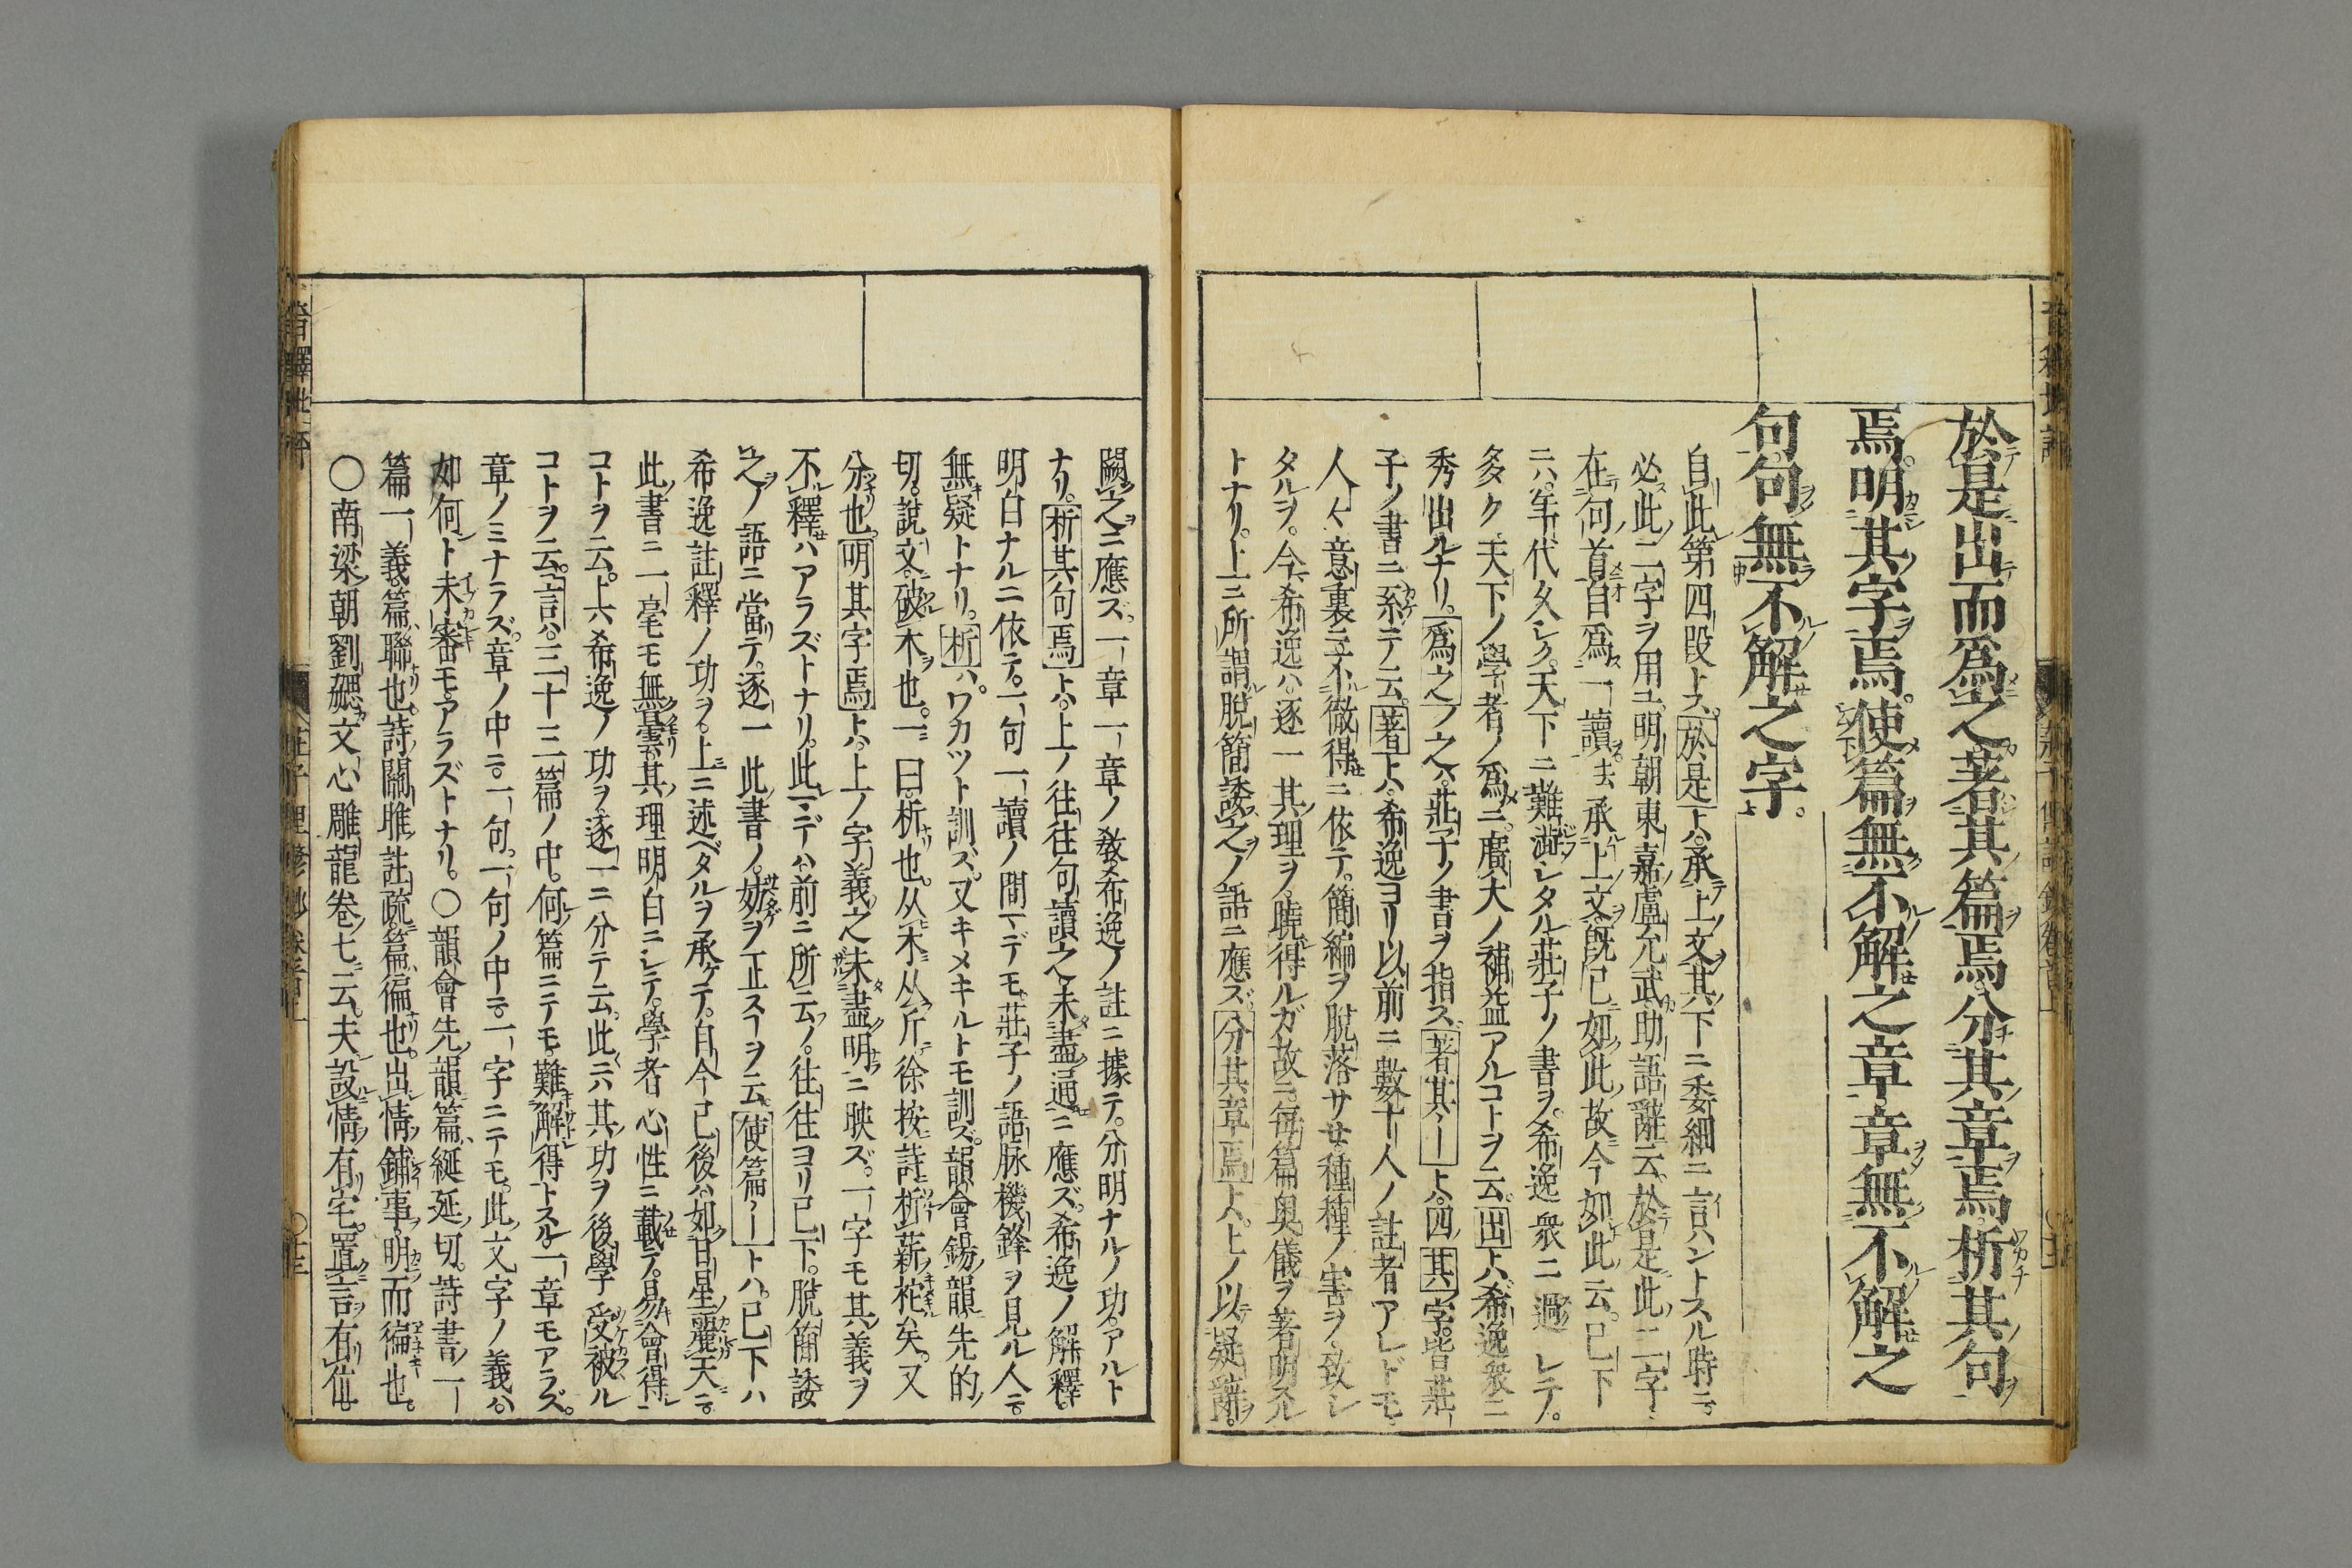 於是出而爲之著其篇焉分其章焉析其句
焉明其字焉使篇無不解之章章無不解之
句句無不解之字
自此第四段トス於是トハ承上文其下ニ委細ニ言ハントスル時ニ
必此二字ヲ用ユ明朝東嘉盧允武助語辭云於是此二字
在句首自爲一讀去承上文既已如此故今如此云已下
ニハ年代久シク天下ニ難澁シタル莊子ノ書ヲ希逸衆ニ過レテ
多ク天下ノ學者ノ爲ニ廣大ノ補益アルコトヲ云出トハ希逸衆ニ
秀出ルナリ爲之ノ之ハ莊子ノ書ヲ指ス著其ートハ四其字皆莊
子ノ書ニ系テ云著トハ希逸ヨリ以前ニ數十人ノ註者アレドモ
人人意裏ニ不徹得ニ依テ簡編ヲ脱落サセ種種ノ害ヲ致シ
タルヲ今希逸ハ逐一其理ヲ曉得ルガ故ニ毎篇奥儀ヲ著明スル
トナリ上ニ所謂脱簡諉之ノ語ニ應ズ分其章焉トハ上ノ以疑辭
闕之ニ應ズ一章一章ノ教希逸ノ註ニ據テ分明ナルノ功アルト
ナリ析其句焉トハ上ノ往往句讀之未盡通ニ應ズ希逸ノ解釋
明白ナルニ依テ一句一讀ノ間マデモ莊子ノ語脉機鋒ヲ見ル人ニ
無疑トナリ析ハワカツト訓ズ又キメキルトモ訓ズ韻會錫韻先的
切說文破木也一曰析也从木从斤徐按詩析薪杝矣又
分也明其字焉トハ上ノ字義之未盡明ニ映ズ一字モ其義ヲ
不釋ハアラズトナリ此マデハ前ニ所云ノ往往ヨリ已下脱簡諉
之ノ語ニ當テ逐一此書ノ妨ヲ正スコヲ云使篇ートハ已下ハ
希逸註釋ノ功ヲ上ニ述ベタルヲ承ケテ自今已後ハ如日星麗天ニ
此書ニ一毫モ無曇其理明白ニシテ學者心性ニ載テ易會得
コトヲ云上ハ希逸ノ功ヲ逐一ニ分テ云此ニハ其功ヲ後學受被ル
コトヲ云言ハ三十三篇ノ中何篇ニテモ難解得トスル一章モアラズ
章ノミナラズ章ノ中ニ一句一句ノ中ニ一字ニテモ此文字ノ義ハ
如何ト未審モアラズトナリ〇韻會先韻篇紕延切詩書ノ一
篇一義篇聯也詩關雎註疏篇徧也出情鋪事明而徧也
〇南梁朝劉勰文心雕龍卷七云夫設情有宅置言有位